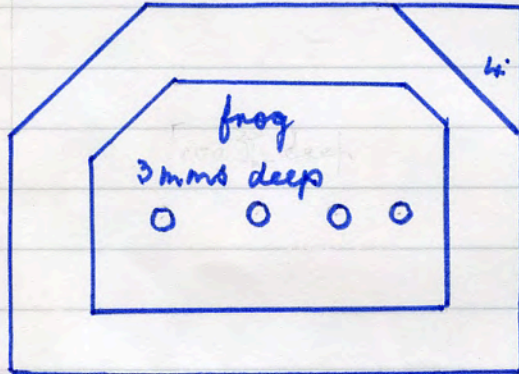 frog
3 mms deep